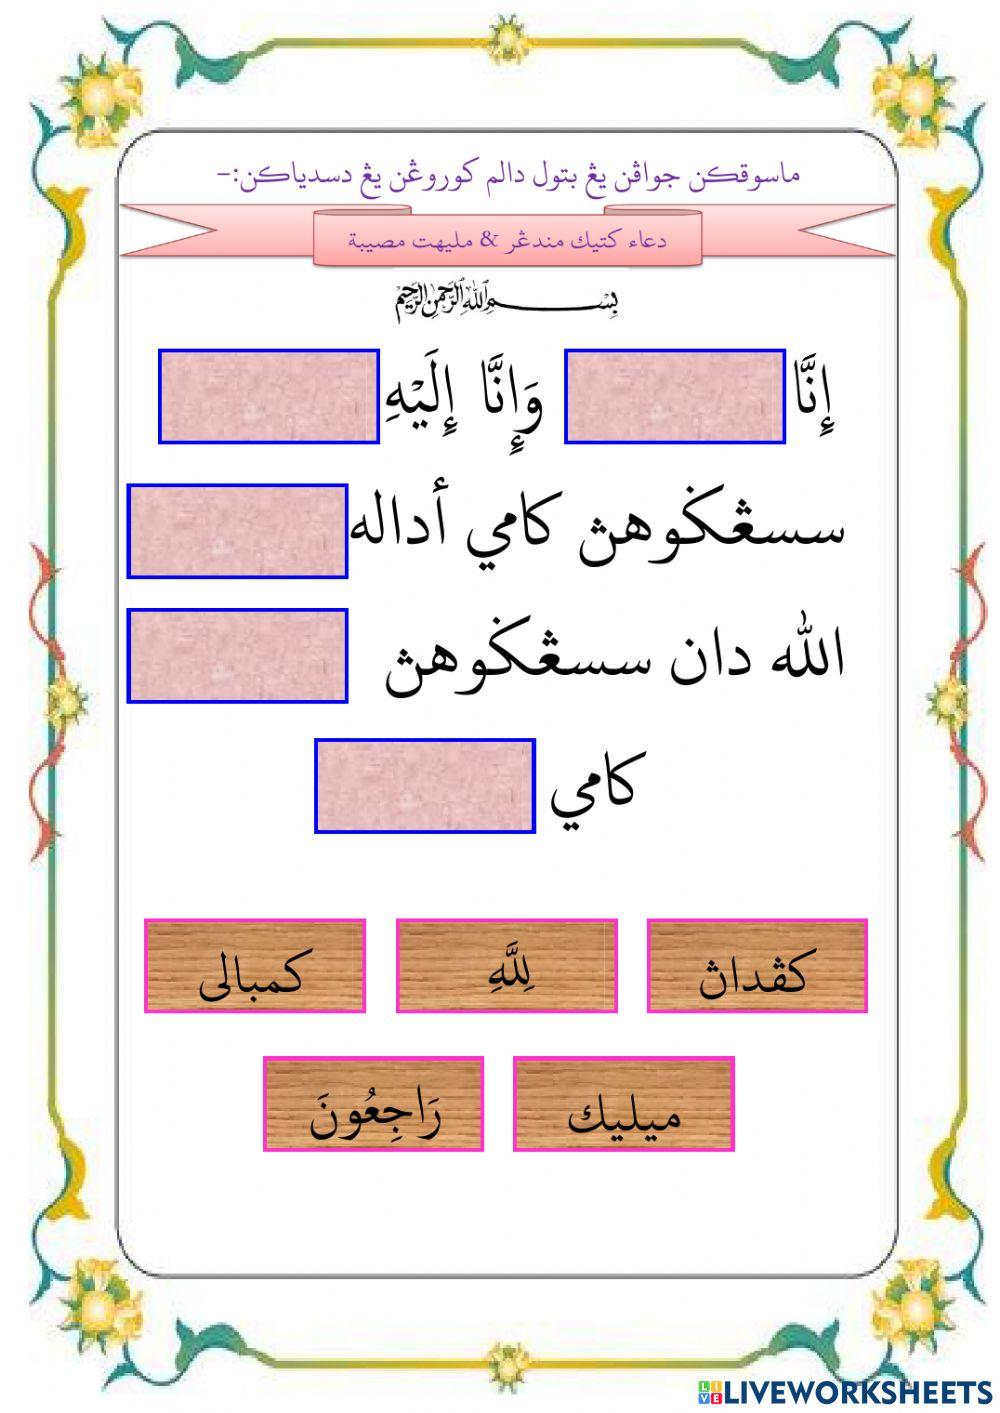 ماسوقكن جواڤن يڠ بتول دالم كوروڠن يڠ دسدياكن:-
دعاء كتيك مندڠر & مليهت مصيبة
بِسْمِ اللَّهِ الرَّحْمَنِ الرَّحِيمِ
إِنَّا وَإِنَّا إِلَيْهِ
سسڠݢوهڽ كامي أداله
الله دان سسڠݢوهڽ
كامي
كڤداڽ لِلَّهِ كمبالى
ميليك رَاجِعُونَ
LIVEWORKSHEETS